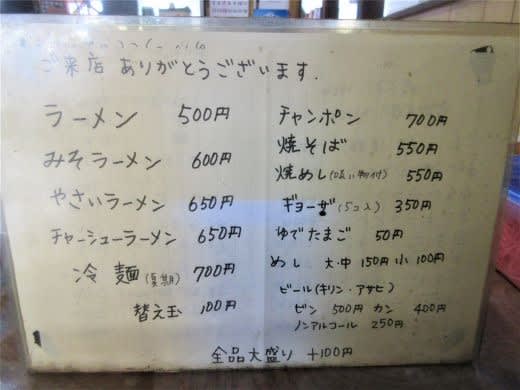 ご来店 ありがとうございます.
ラーメン 500円
みそラーメン 600円
やさいラーメン 650円
チャーシューラーメン 650円
冷麺(夏期) 700円
替え玉 100円
チャンポン 700円
焼そば 550円
焼めし(吸い物付) 550円
ギョーザ(5コ入) 350円
ゆでたまご 50円
めし 大・中 150円 小 100円
ビール(キリン・アサヒ)
ビン 500円 カン 400円
ノンアルコール 250円
全品大盛り +100円